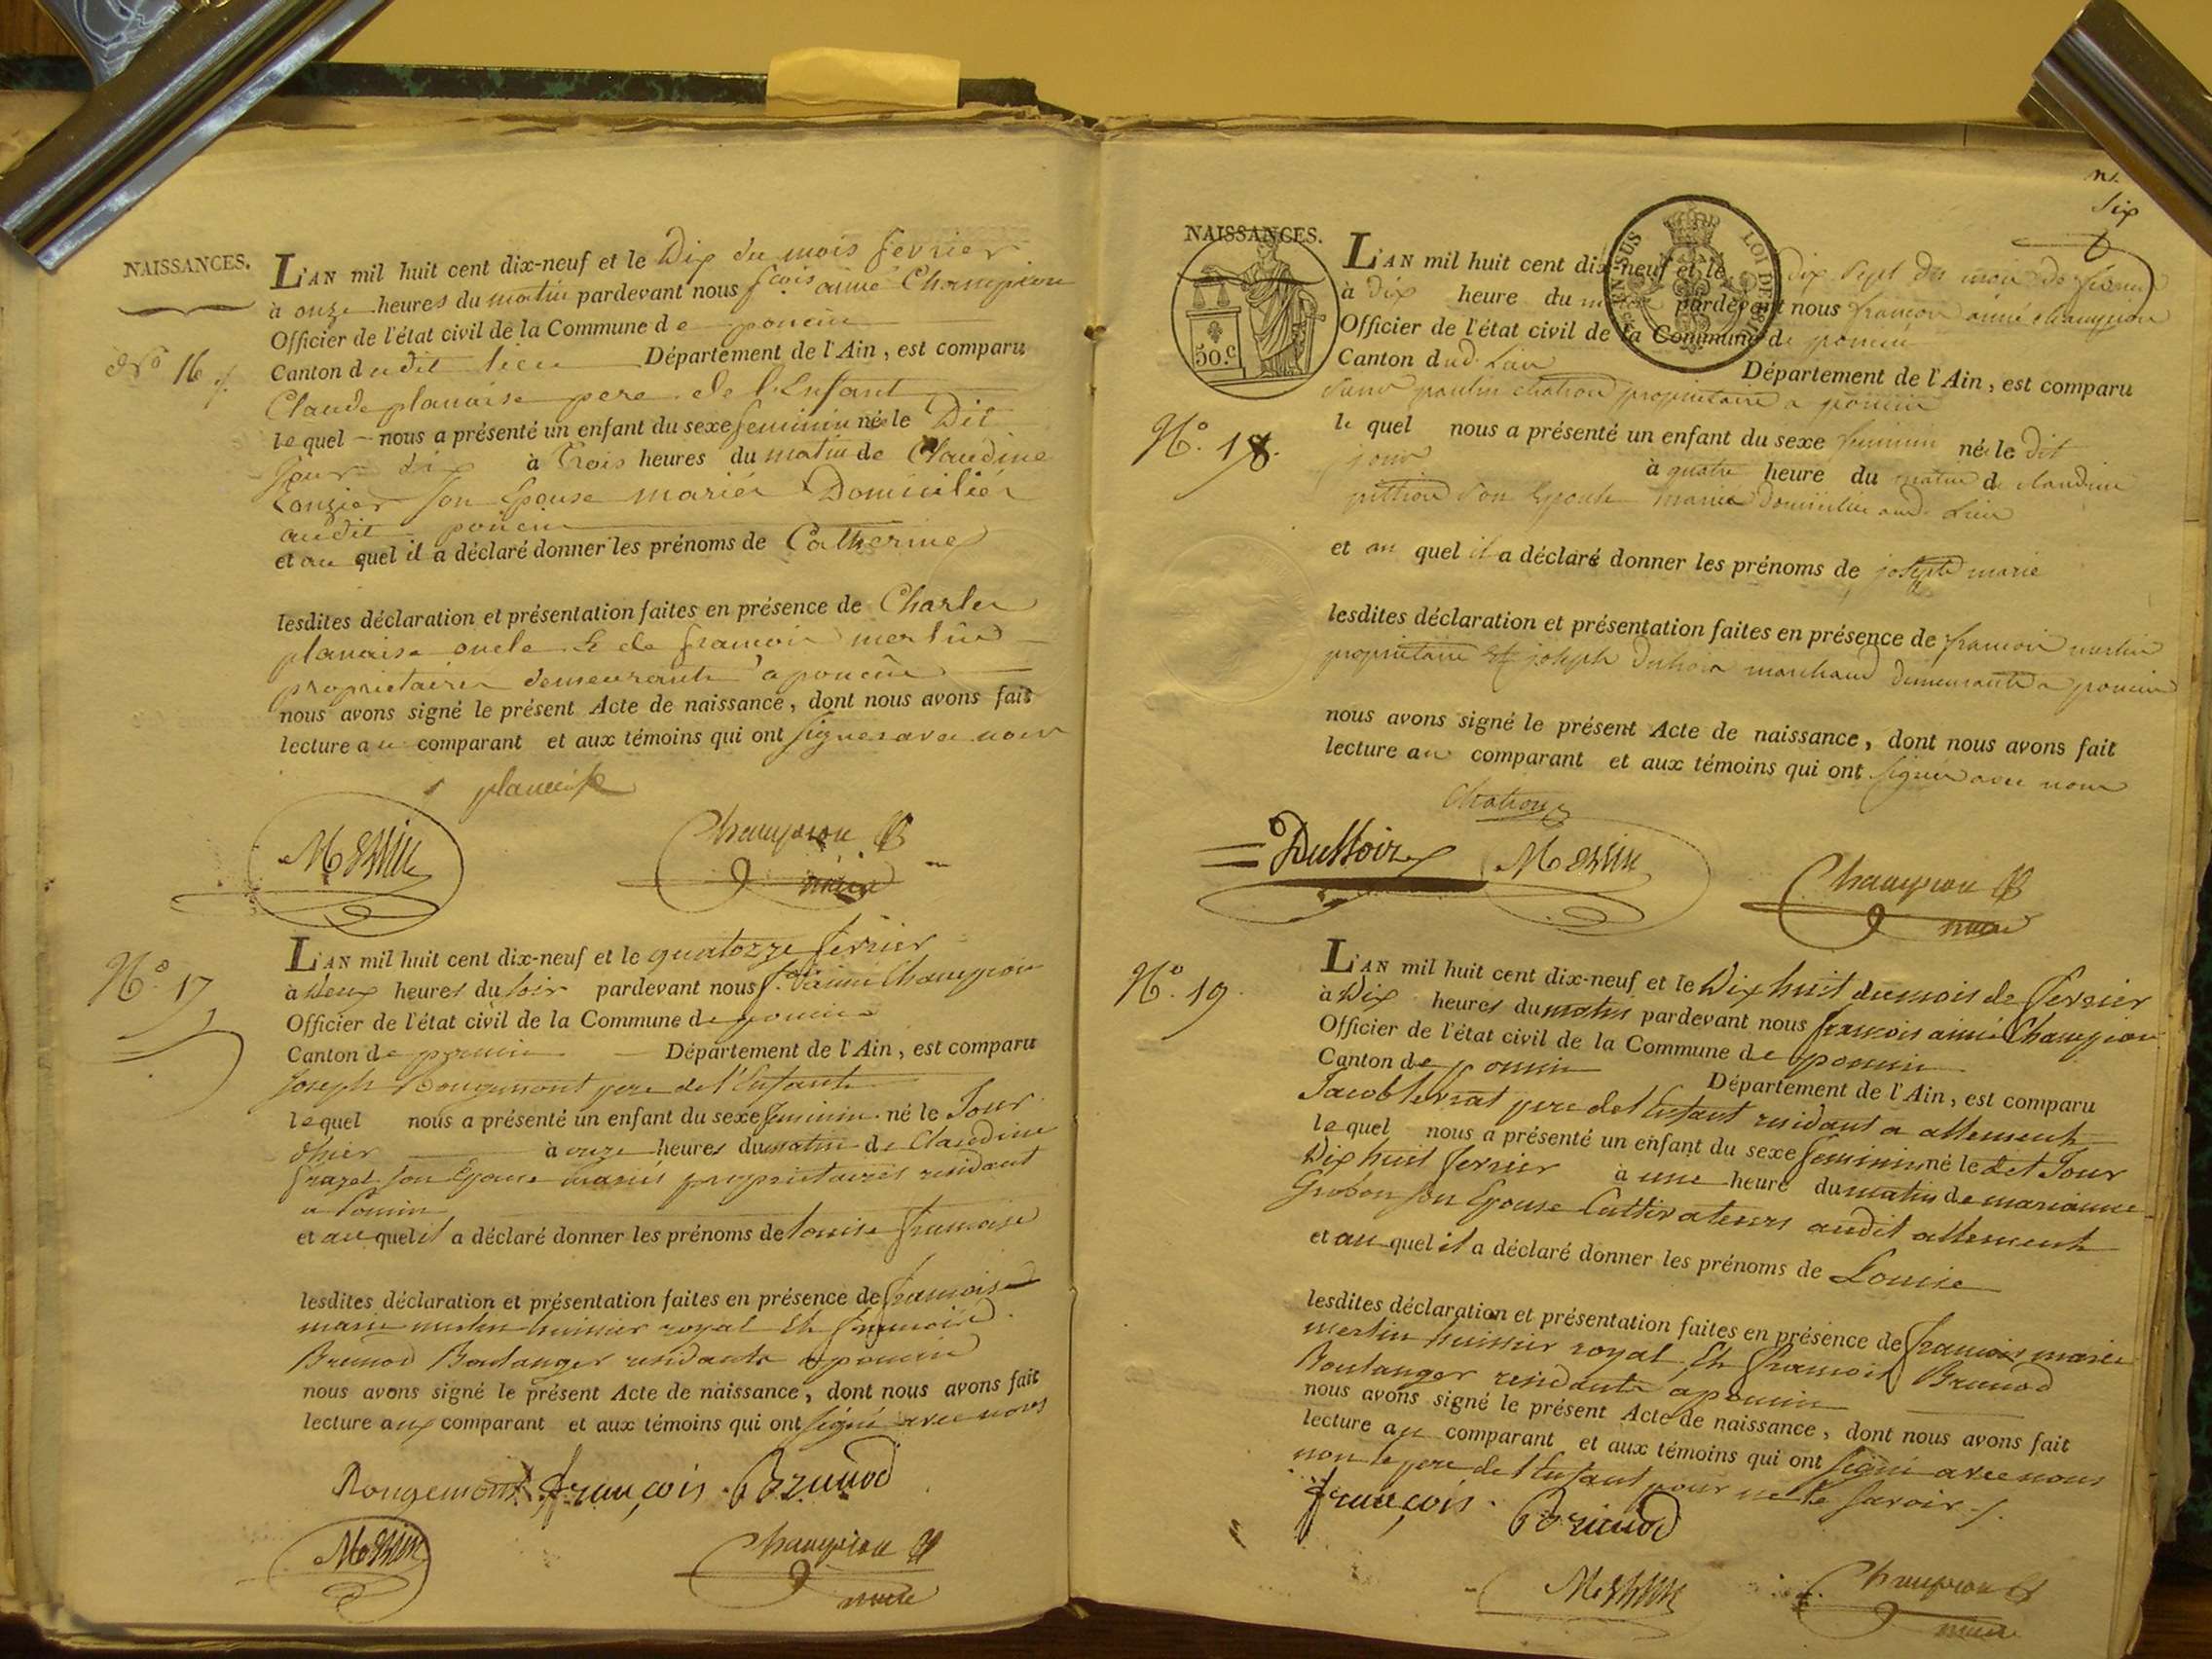 NAISSANCES.
N° 16
L'AN mil huit cent dix-neuf et le Dix du mois fevrier
à onze heures du matin pardevant nous fcois aimé Champion
Officier de l'état civil de la Commune de poncin
Canton dudit lieu Département de l'Ain, est comparu
Claude planaise pere de l'Enfant
lequel nous a présenté un enfant du sexe feminin né le Dit
Jour dix à trois heures du matin de Claudine
son Epouse mariés Domiciliés
audit poncin
et au quel il a déclaré donner les prénoms de Catherine
lesdites déclaration et présentation faites en présence de Charles
planaise oncle & de francois merlin
proprietaires demeurants a poncin
nous avons signé le présent Acte de naissance, dont nous avons fait
lecture au comparant et aux témoins qui ont signes avec nous
planaise
Merlin Champion
maire
N° 17
L'AN mil huit cent dix-neuf et le quatorze fevrier
à Deux heures du soir pardevant nous f. aimé Champion
Officier de l'état civil de la Commune de poncin
Canton de poncin Département de l'Ain, est comparu
Joseph Rougemont pere de l'Enfant
lequel nous a présenté un enfant du sexe feminin né le Jour
d'hier à onze heures du matin de Claudine
son Epouse mariés proprietaires residant
a Poncin
et au quel il a déclaré donner les prénoms de louise francoise
lesdites déclaration et présentation faites en présence de francois
marie merlin huissier royal Et francois
Brunod Boulanger residants a poncin
nous avons signé le présent Acte de naissance, dont nous avons fait
lecture aux comparant et aux témoins qui ont signé avec nous
Rougemont françois Brunod
Merlin Champion
maire
six
NAISSANCES.
50.c
LOI DE
N° 18.
L'AN mil huit cent dix-neuf et le dix sept du mois de fevrier
à dix heure du matin pardevant nous françois aimé champion
Officier de l'état civil de la Commune de poncin
Canton dud. Lieu Département de l'Ain, est comparu
paulin chation proprietaire a poncin
le quel nous a présenté un enfant du sexe feminin né le dit
jour à quatre heure du matin de claudine
son Epouse mariés domiciliés aud. Lieu
et au quel il a déclaré donner les prénoms de joseph marie
lesdites déclaration et présentation faites en présence de francois merlin
proprietaire et joseph duhoir marchand demeurants a poncin
nous avons signé le présent Acte de naissance, dont nous avons fait
lecture au comparant et aux témoins qui ont signés avec nous
Chation
Merlin
Champion
maire
N° 19.
L'AN mil huit cent dix-neuf et le Dix huit du mois de fevrier
à Dix heures du matin pardevant nous francois aimé Champion
Officier de l'état civil de la Commune de poncin
Canton de poncin Département de l'Ain, est comparu
Jacob levrat pere de l'Enfant residant a allement
lequel nous a présenté un enfant du sexe feminin né le dit Jour
Dix huit fevrier à une heure du matin de marianne
Grobon son Epouse Cultivateurs audit allement
et au quel il a déclaré donner les prénoms de Louise
lesdites déclaration et présentation faites en présence de francois marie
merlin huissier royal, Et francois Brunod
Boulanger residants a poncin
nous avons signé le présent Acte de naissance, dont nous avons fait
lecture au comparant et aux témoins qui ont signé avec nous
non le pere de l'Enfant pour ne le savoir
françois Brunod
Merlin Champion
maire